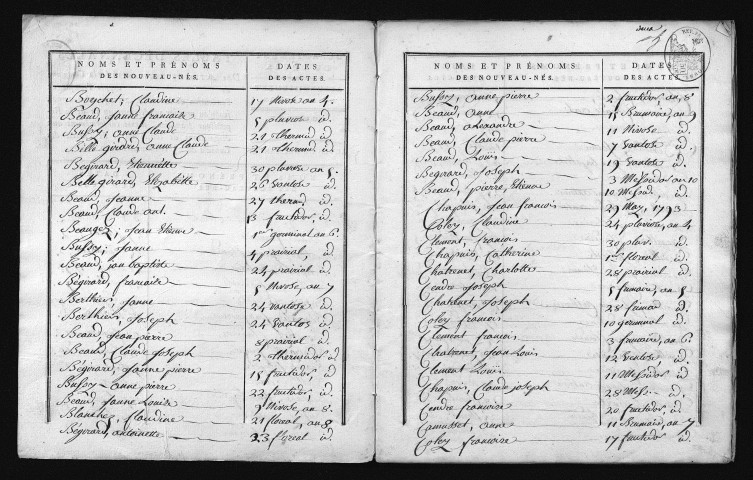 NOMS ET PRÉNOMS DES NOUVEAU-NÉS.
DATES DES ACTES.
Boychet, Claudine 17 Nivose an 4.
Béaud, Janne francaise 5 pluviose id
Bussoz, anne Claude 21 thermid id
Belle girard, anne Claude 21 thermid id
Begirard, Etiennette 30 pluviose an 5.
Belle girard, Elizabette 26 vantose id
Beaud, Jeanne 27 thermid id
Beaud, Claude ant. 13 fructidor, id
Beaugez, Jean Etienne 1er germinal an 6.
Bussoz, Janne 4 prairial, id
Béaud, jan baptiste 24 prairial id
Bégirard, francaise 5 Nivose, an 7
Berthier, Janne 24 vantose id
Berthier, Joseph 24 vantos id
Beaud, Jean pierre 8 prairial id
Beaud, Claude Joseph 2 thermidor id
Bégirard, Janne pierre 18 fructidor, id
Bussoz anne pierre 22 fructidor, id
Beaud, Janne Louise Nivose, an 8.
Blanche, Claudine 21 floreal, an 8
Bégirard, antoinette 23 floreal id
NOMS ET PRÉNOMS DES NOUVEAU-NÉS.
DATES DES ACTES.
Bussoz, anne pierre 2 fructidor, an 8
Beaud, anne 15 Brumaire, an 9
Beaud, alexandre 11 Nivose id
Beaud, Claude pierre 7 vantose id
Beaud, Louis 19 vantose id
Begirard, Joseph 3 Messidor an 10
Beaud, pierre, Etienne 10 Messid. id
Chapuis, Jean francois 29 May, 1793
Coley, Claudine 24 pluviose, an 4
Clement, francois 30 pluv. id
Chapuis, Catherine 1er floreal id
Chatrenet, Charlotte 28 prairial id
Cendre Joseph 5 frimaire, an 5
Chatrenet, Joseph 28 frimair id
Coley francois 10 germinal id
Clement francois 3 frimaire, an 6.
Chatrenet, Jean Louis 12 vantose id
Clement Louis 11 Messidor id
Chapuis, Claude joseph 28 Mess. id
Cendre francoise 20 fructidor, id
Camusset, anne 11 Brumaire, an 7
Coley francoise 17 fructidor id